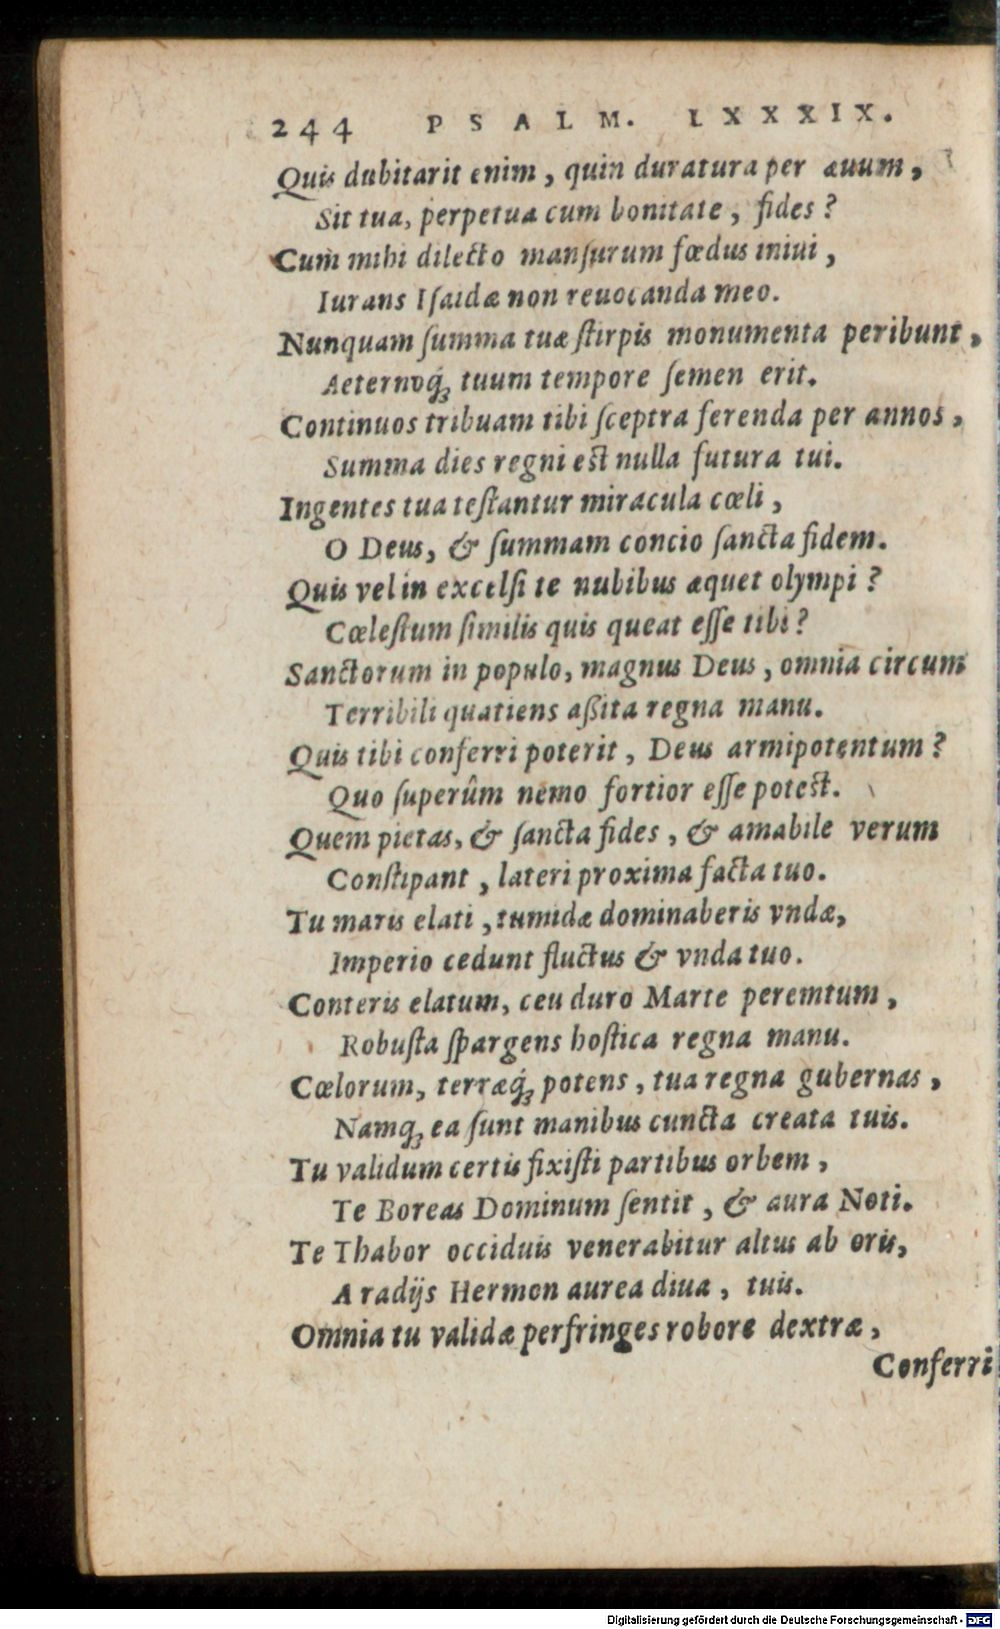 244 PSALM. LXXXIX.
Quis dubitarit enim, quin duratura per æuum,
Sit tua, perpetua cum bonitate, fides?
Cum mihi dilecto manſurum fœdus iniui,
Iurans Iſaidæ non reuocanda meo.
Nunquam ſumma tuæ ſtirpis monumenta peribunt,
Aeternoq́ꝫ tuum tempore ſemen erit.
Continuos tribuam tibi ſceptra ferenda per annos,
Summa dies regni est nulla futura tui.
Ingentes tua teſtantur miracula cœli,
O Deus, & ſummam concio ſancta fidem.
Quis vel in excelſi te nubibus æquet olympi?
Cœleſtum ſimilis quis queat eſſe tibi?
Sanctorum in populo, magnus Deus, omnia circum
Terribili quatiens aßita regna manu.
Quis tibi conferri poterit, Deus armipotentum?
Quo ſuperûm nemo fortior eſſe potest.
Quem pietas, & ſancta fides, & amabile verum
Conſtipant, lateri proxima facta tuo.
Tu maris elati, tumidæ dominaberis vndæ,
Imperio cedunt fluctus & vnda tuo.
Conteris elatum, ceu duro Marte peremtum,
Robuſta ſpargens hoſtica regna manu.
Cœlorum, terræq́ꝫ potens, tua regna gubernas,
Namqꝫ ea ſunt manibus cuncta creata tuis.
Tu validum certis fixiſti partibus orbem,
Te Boreas Dominum ſentit, & aura Noti.
Te Thabor occiduis venerabitur altus ab oris,
A radijs Hermon aurea diua, tuis.
Omnia tu validæ perfringes robore dextræ,
Conferri
Digitalisierung gefördert durch die Deutsche Forschungsgemeinschaft - DFG